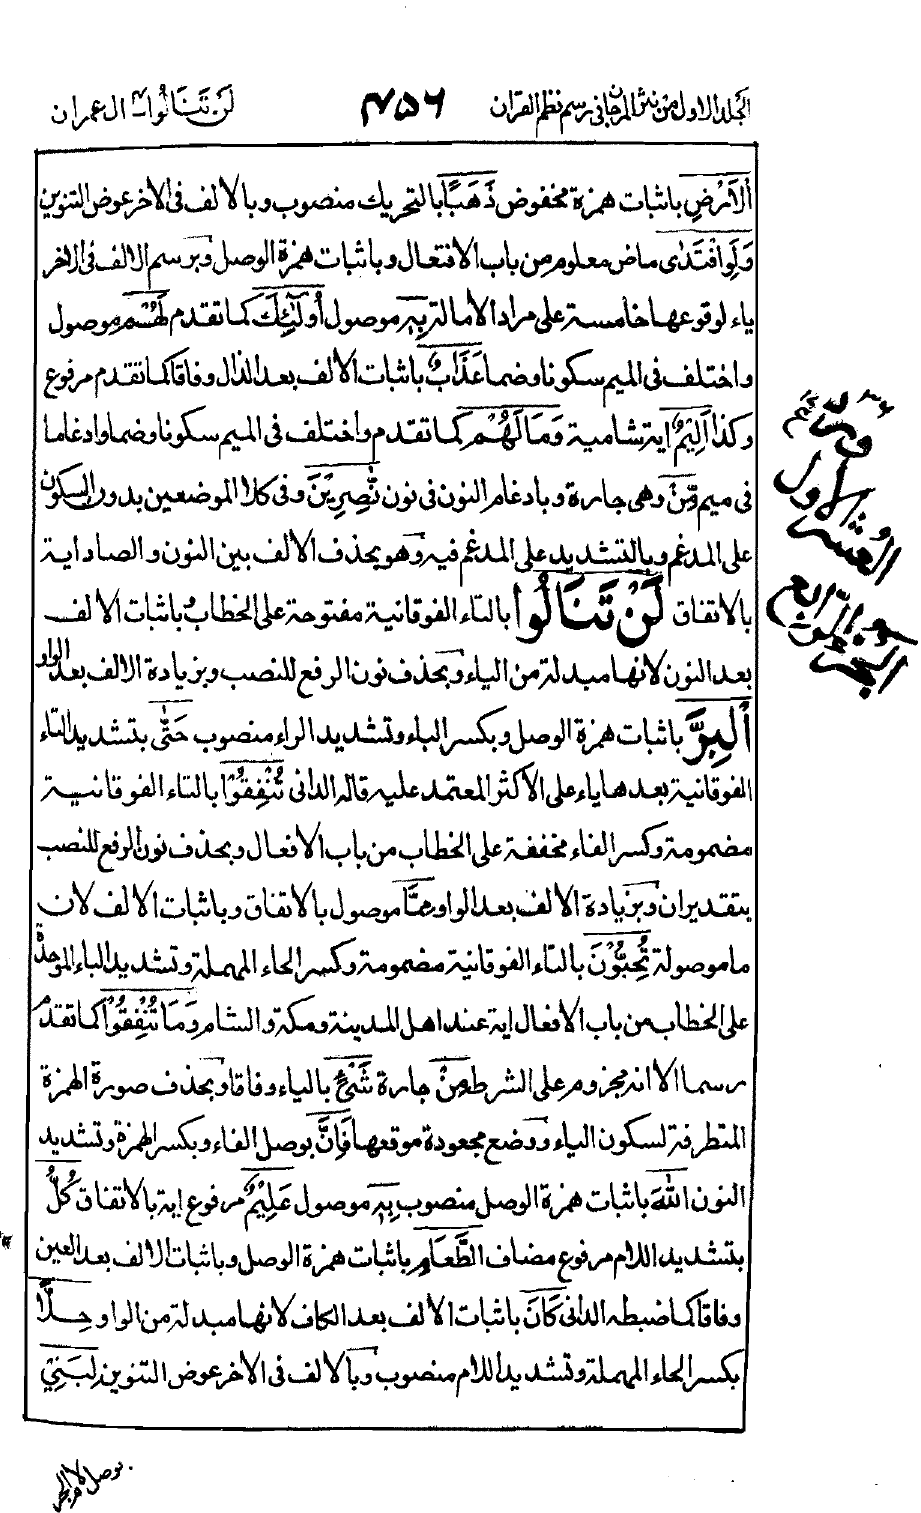 الجلد الاول من نثر المرجان فى رسم نظم القران
۴۵۶
لَنْ تَنَالُوا ۴ ال عمران
اَلْاَرْضِ باثبات همزة مخفوض ذَهَبًا بالتحريك منصوب وبالالف فى الاخر عوض التنوين
وَلَوِ افْتَدٰى ماض معلوم من باب الافتعال وباثبات همزة الوصل وبرسم الالف فى الاخر
ياء لوقوعها خامسة على مراد الامالة بِهٖ موصول اُولٰٓئِكَ كما تقدم لَهُمْ موصول
واختلف فى الميم سكونا وضما عَذَابٌ باثبات الالف بعد الذال وفاقا كما تقدم مرفوع
وكذا اَلِيْمٌ اية شامية وَمَا لَهُمْ كما تقدم واختلف فى الميم سكونا وضما وادغاما
فى ميم مِّنْ وهى جارة وبادغام النون فى نون نّٰصِرِيْنَ وفى كلا الموضعين بدون السكون
على المدغم وبالتشديد على المدغم فيه وهو بحذف الالف بين النون والصاد اية
بالاتفاق لَنْ تَنَالُوا بالتاء الفوقانية مفتوحة على الخطاب باثبات الالف
بعد النون لانها مبدلة من الياء وبحذف نون الرفع للنصب وبزيادة الالف بعد الواو
اَلْبِرَّ باثبات همزة الوصل وبكسر الباء وتشديد الراء منصوب حَتّٰى بتشديد التاء
الفوقانية بعدها ياء على الاكثر المعتمد عليه قاله الدانى تُنْفِقُوْا بالتاء الفوقانية
مضمومة وكسر الفاء مخففة على الخطاب من باب الافعال وبحذف نون الرفع للنصب
بتقدير ان وبزيادة الالف بعد الواو مِمَّا موصول بالاتفاق وباثبات الالف لان
ما موصولة تُحِبُّوْنَ بالتاء الفوقانية مضمومة وكسر الحاء المهملة وتشديد الباء الموحدة
على الخطاب من باب الافعال اية عند اهل المدينة ومكة والشام وَمَا تُنْفِقُوْا كما تقدم
رسما الا انه مجزوم على الشرط مِنْ جارة شَيْءٍ بالياء وفاقا وبحذف صورة الهمزة
المتطرفة لسكون الياء ووضع مجعودة موقعها فَاِنَّ بوصل الفاء وبكسر الهمزة وتشديد
النون اللّٰهَ باثبات همزة الوصل منصوب بِهٖ موصول عَلِيْمٌ مرفوع اية بالاتفاق كُلُّ
بتشديد اللام مرفوع مضاف الطَّعَامِ باثبات همزة الوصل وباثبات الالف بعد العين
وفاقا كما ضبطه الدانى كَانَ باثبات الالف بعد الكاف لانها مبدلة من الواو حِلًّا
بكسر الحاء المهملة وتشديد اللام منصوب وبالالف فى الاخر عوض التنوين لِبَنِيْ
العُشر الاول
الجزء الرابع
بوصل لام الجر